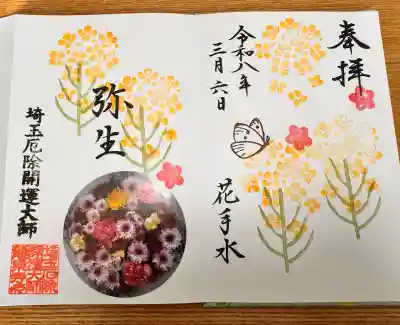 奉拝
令和八年
三月六日
花手水
弥生
埼玉厄除開運大師